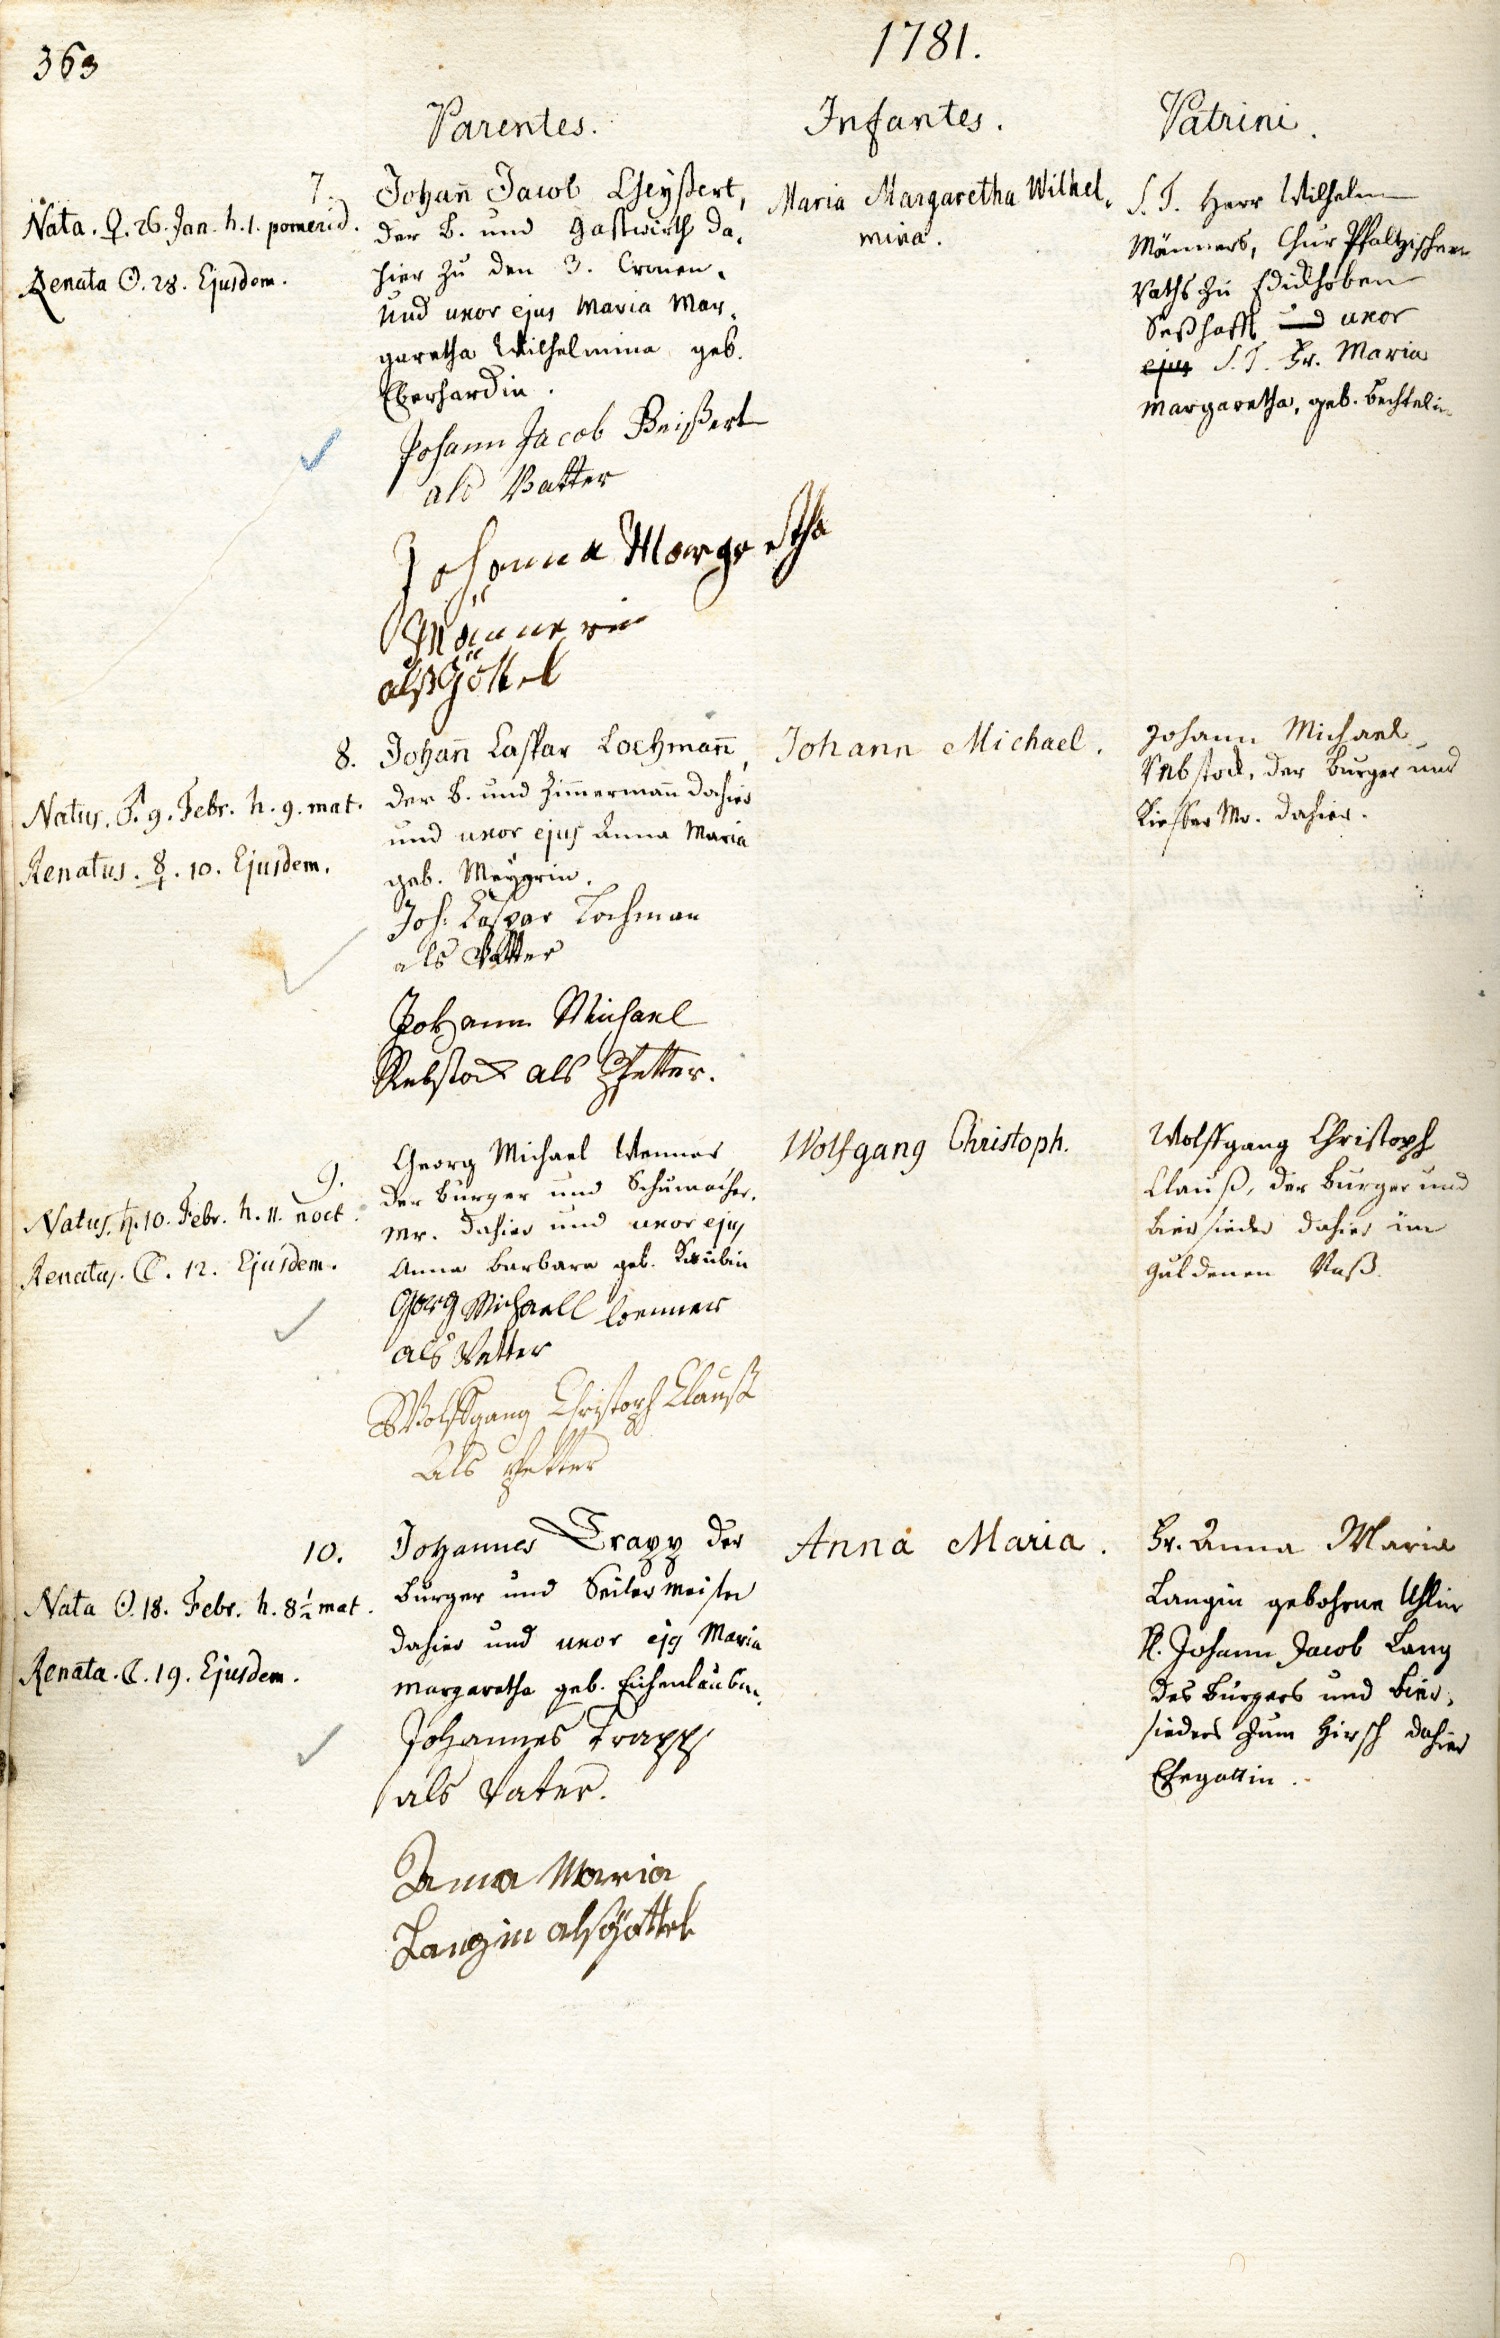 363
1781.
Parentes.
Infantes.
Patrini.
7.
Nata. ♀. 26. Jan. h. 1. pomerid.
Renata ☉. 28. Ejusdem.
Johañ Jacob Gheyßert,
der B. und Gastwirth da,
hier zu den 3. Cronen,
und uxor ejus Maria Mar,
garetha Wilhelmina geb.
Eberhardin.
Johann Jacob Geißert
als Vatter
Johanna Margretha
Männerin
alß Göttel
Maria Margaretha Wilhel,
mina.
S. T. Herr Wilhelm
Männers, Chur Pfaltzischen
Raths zu Edickhoben
Seßhafft und uxor
ejus S. T. Fr. Maria
Margaretha, geb. Bechtelin
8.
Natus. ♂. 9. Febr. h. 9. mat.
Renatus. ☿. 10. Ejusdem.
Johañ Caspar Lochmañ,
der B. und Zim̄ermañ dahier
und uxor ejus Anna Maria
geb. Meyerin.
Joh: Caspar Lochman
als Vatter
Johann Michael
Rebstock als Pfetter.
Johann Michael.
Johann Michael
Rebstock, der Burger und
Kieffer Mr. dahier.
9.
Natus. ♄. 10. Febr. h. 11. noct.
Renatus. ☾. 12. Ejusdem.
Georg Michael Wenner
der Burger und Schumacher,
Mr. dahier und uxor ejus
Anna Barbara geb.
Georg Michaell Wenner
als Vatter
Wolffgang Christoph Clauß
Als Petter
Wolfgang Christoph.
Wolffgang Christoph
Clauß, der Burger und
Biersieder dahier im
Guldenen Roß.
10.
Nata ☉. 18. Febr. h. 8½ mat.
Renata. ☾. 19. Ejusdem.
Johannes Trapp der
Burger und Seilermeister
dahier und uxor ejs Maria
Margaretha geb. Eichenlaubin.
Johannes Trapp
als Vater.
Anna Maria
Langin als Göttel
Anna Maria.
Fr. Anna Maria
Langin gebohrne Uhlin
H. Johann Jacob Lang
des Burgers und Bier,
sieders zum Hirsch dahier
Ehegattin.